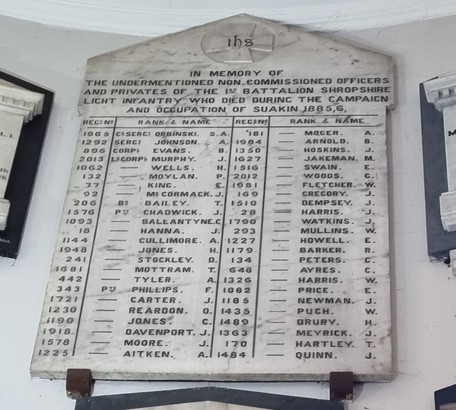 ihs
IN MEMORY OF
THE UNDERMENTIONED NON.COMMISSIONED OFFICERS
AND PRIVATES OF THE 1ST BATTALION SHROPSHIRE
LIGHT INFANTRY WHO DIED DURING THE CAMPAIGN
AND OCCUPATION OF SUAKIN 1885,6.
REGTNO RANK & NAME REGTNO RANK & NAME
1965 CR SERGT ORBINSKI. S.A. 781 — MOGER. A.
1292 SERGT JOHNSON. A. 1984 — ARNOLD. B.
896 CORPL EVANS. B. 1350 — HOSKINS. J.
2013 L.CORPL MURPHY. J. 1627 — JAKEMAN. M.
1062 — WELLS. H. 1516 — SWAIN. E.
132 — MOYLAN. P. 2012 — WOODS. C.
77 — KING. E. 1981 — FLETCHER. W.
92 — MCCORMACK. J. 169 — GREGORY. J.
206 BR BAILEY. T. 1510 — DEMPSEY. J.
1576 PTE CHADWICK. J. 28 — HARRIS. J.
1093 — BALLANTYNE. C. 1790 — WATKINS. J.
18 — HANNA. J. 293 — MULLINS. W.
1144 — CULLIMORE. A. 1227 — HOWELL. E.
1948 — JONES. H. 1179 — BARKER. R.
241 — STOCKLEY. D. 134 — PETERS. C.
1681 — MOTTRAM. T. 648 — AYRES. C.
442 — TYLER. A. 1326 — HARRIS. W.
343 PTE PHILLIPS. F. 1082 — PRICE. E.
1721 — CARTER. J. 1185 — NEWMAN. J.
1230 — REARDON. D. 1435 — PUGH. W.
1190 — JONES. C. 1489 — DRURY. H.
1918 — DAVENPORT. J. 1363 — MEYRICK. J.
1578 — MOORE. J. 170 — HARTLEY. T.
1225 — AITKEN. A. 1484 — QUINN. J.